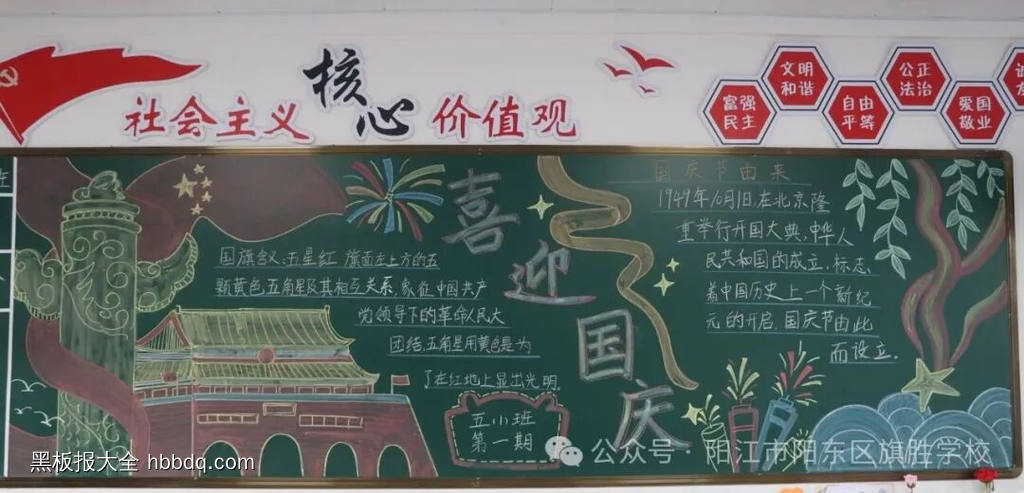 社会主义
核心
价值观
富强
民主
文明
和谐
自由
平等
公正
法治
爱国
敬业
喜迎国庆
国旗含义:五星红旗面左上方的五
颗黄色五角星及其相互关系,象征中国共产
党领导下的革命人民大
团结,五角星用黄色是为
了在红地上显出光明.
五小班
第一期
国庆节由来
1949年10月1日,在北京隆
重举行开国大典,中华人
民共和国的成立,标志
着中国历史上一个新纪
元的开启,国庆节由此
而设立.
黑板报大全 hbbdq.com
公众号·阳江市阳东区旗胜学校